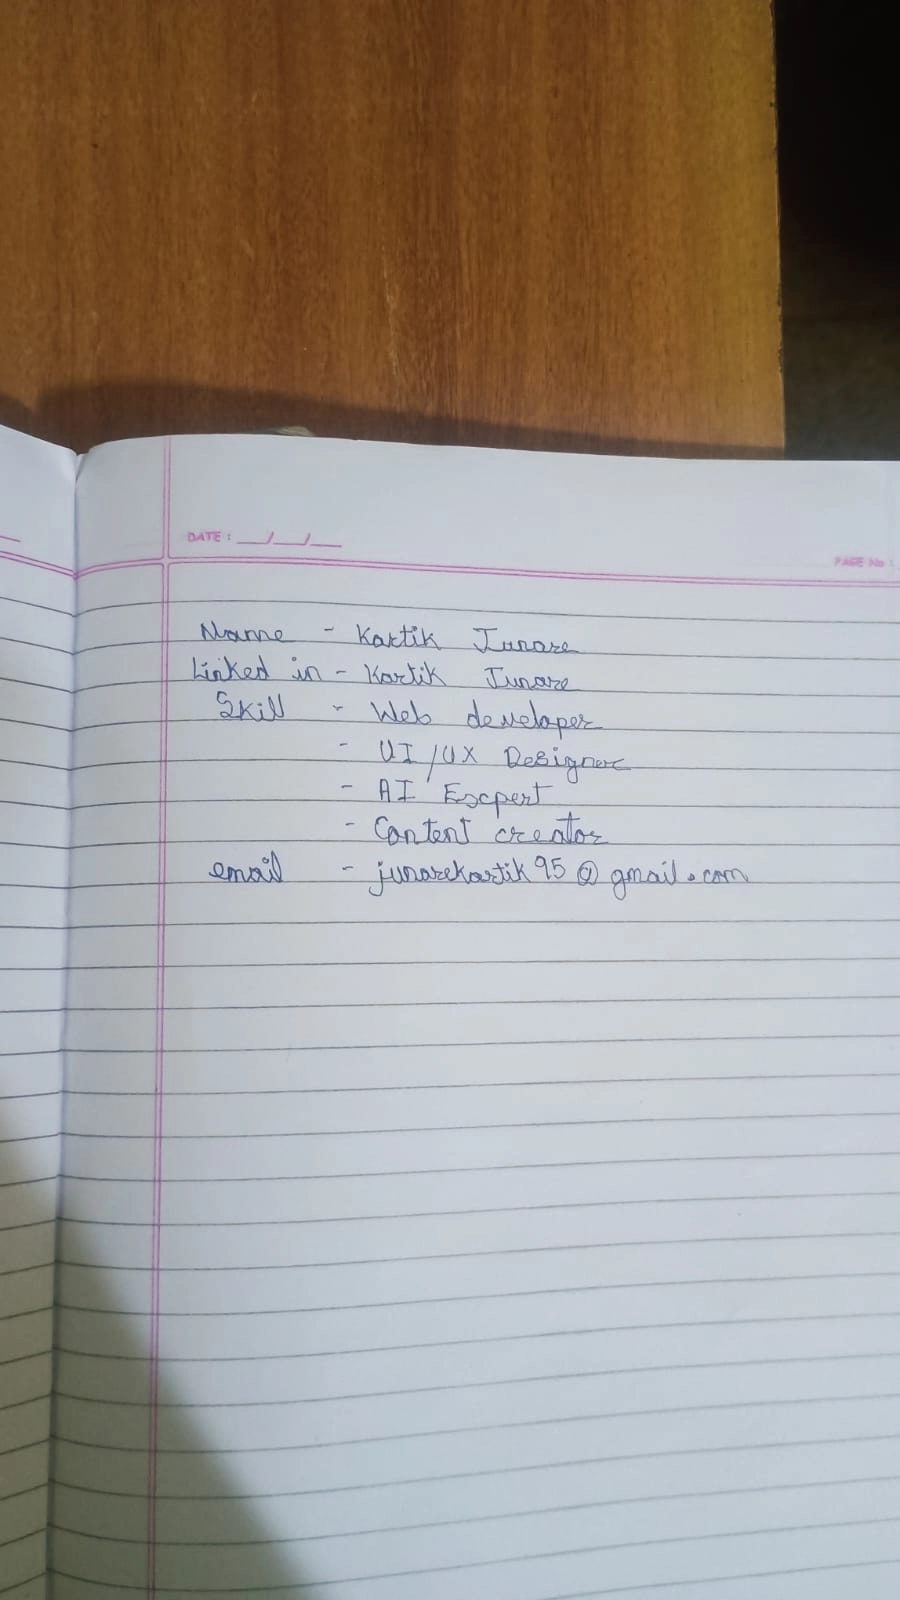 DATE : __/__/__
PAGE No :
Name - Kartik Junare
Linked in - Kartik Junare
Skill - Web developer
- UI/UX Designer
- AI Expert
- Content creator
email - junarekartik95@gmail.com